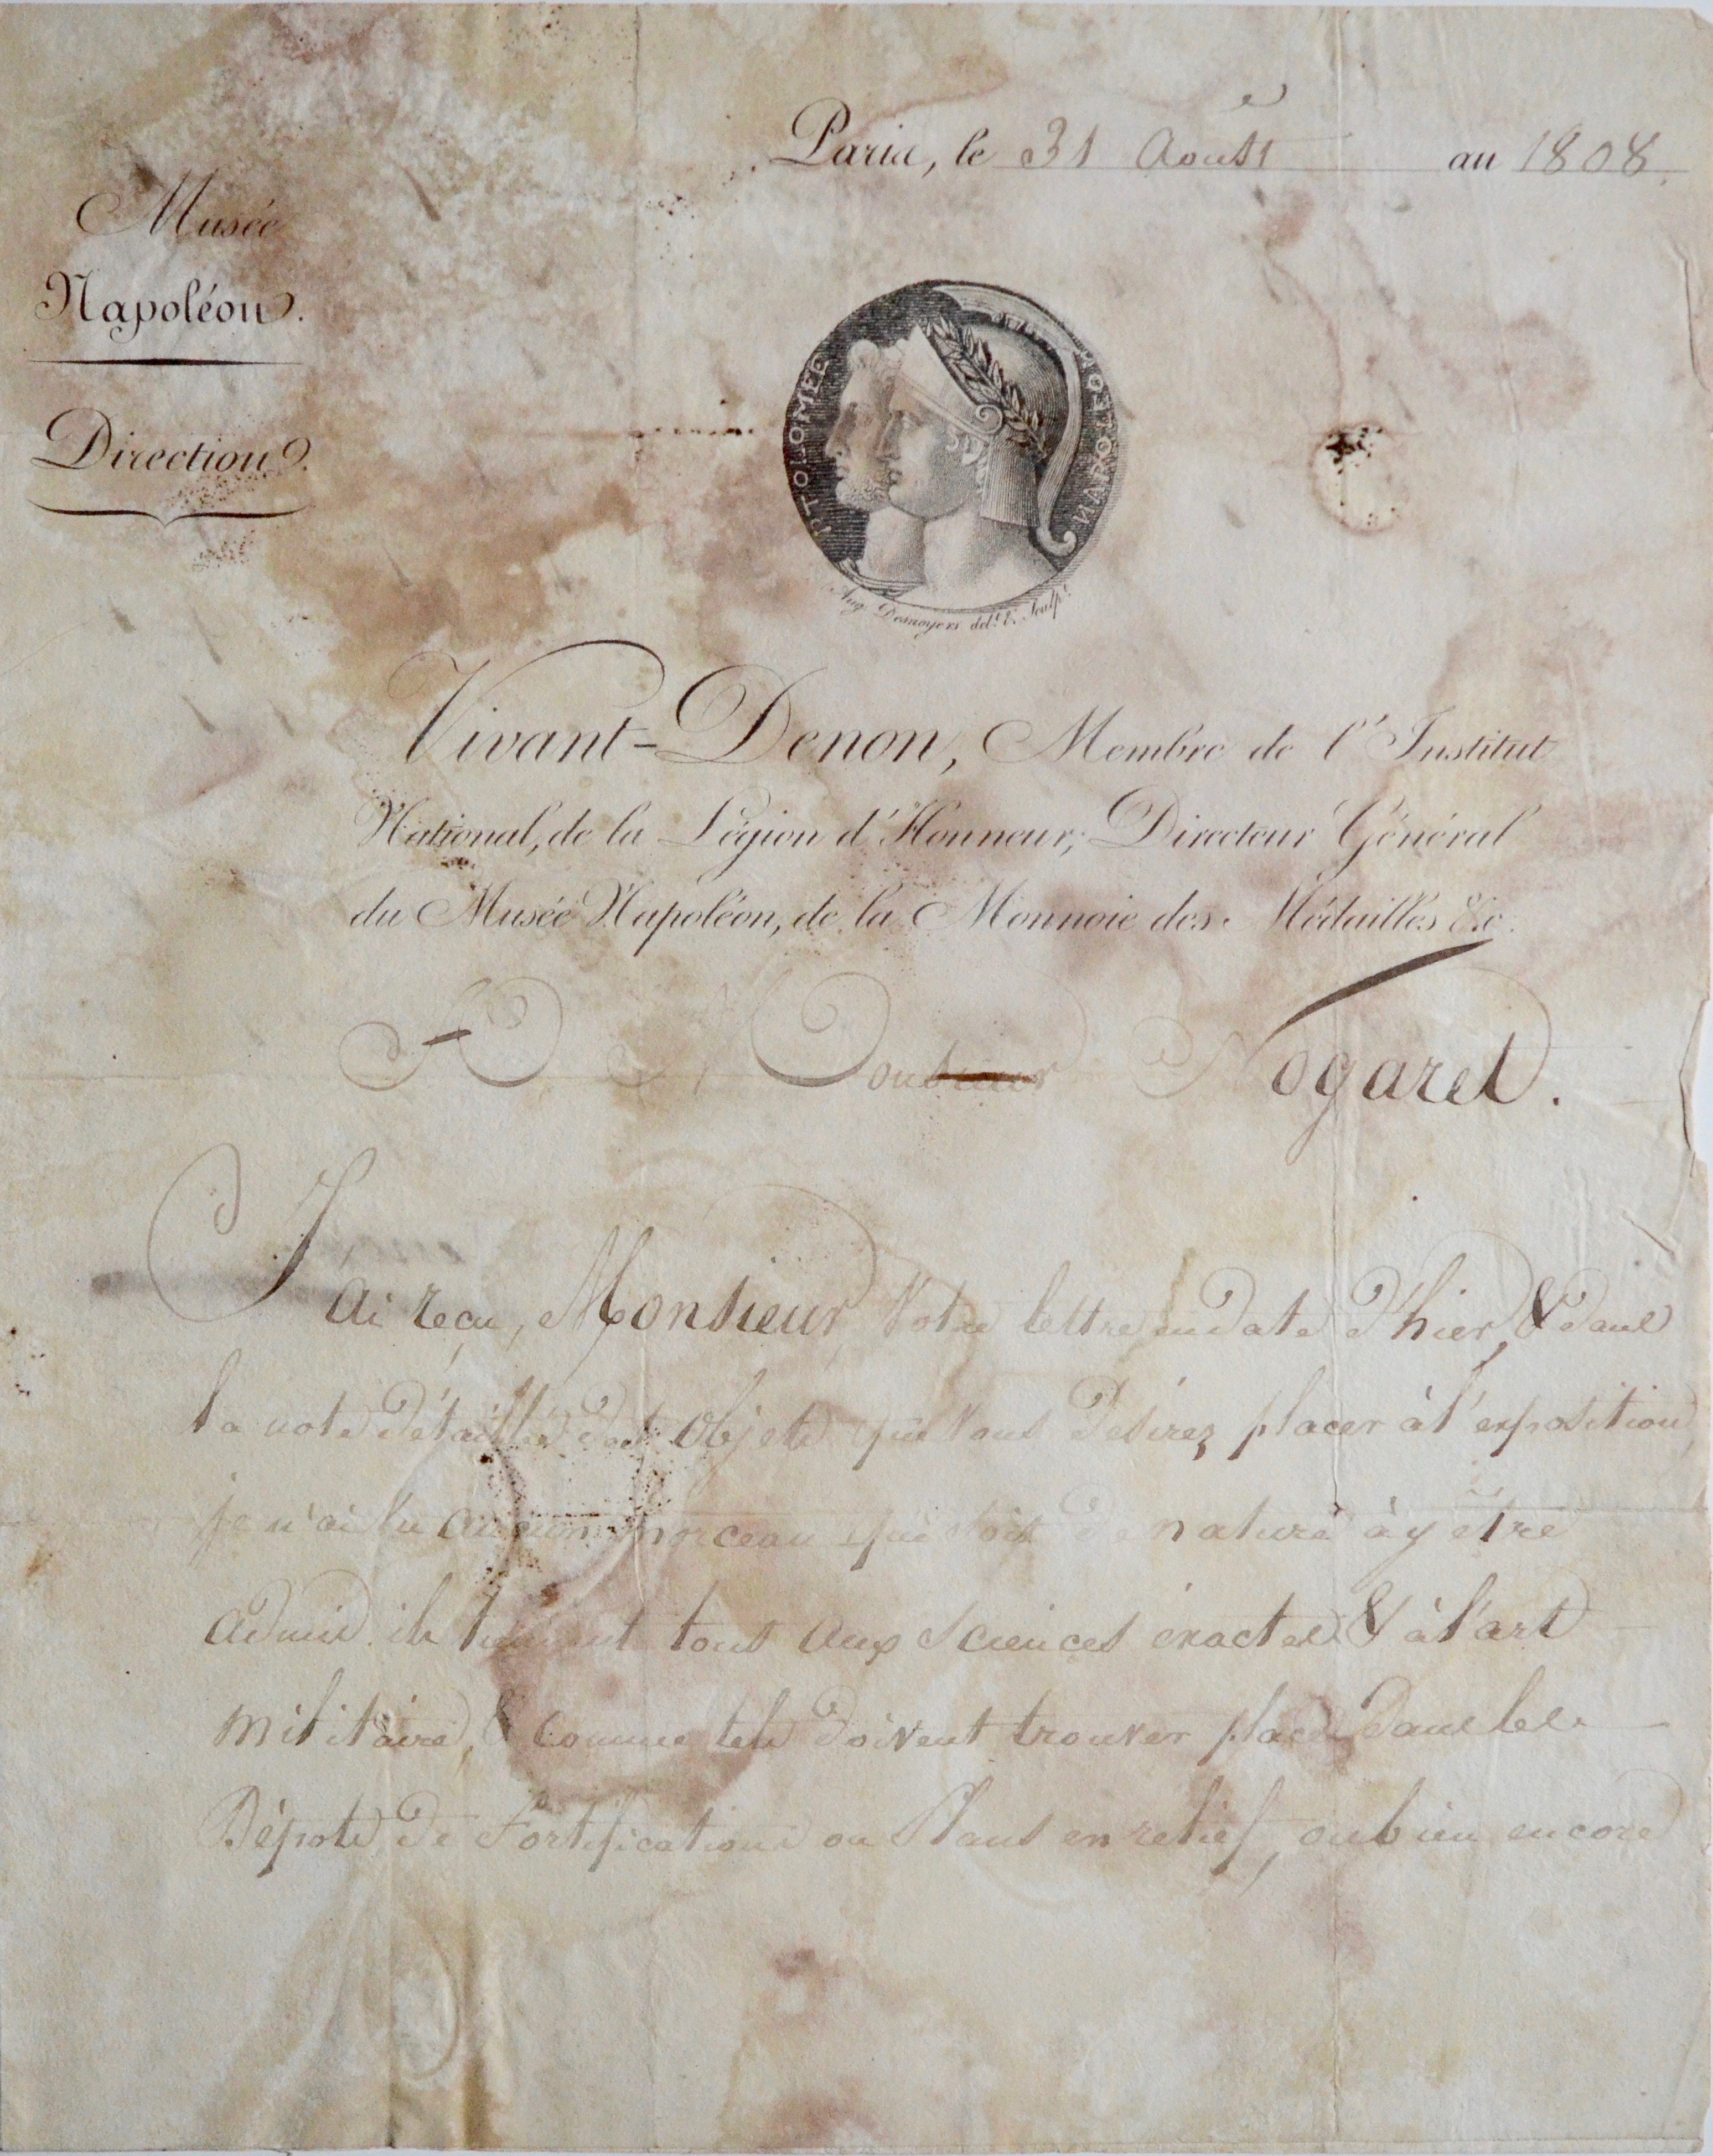 Paris, le 31 Aoust au 1808.
Musée
Napoléon.
Direction.
PTOLOMEO NAPOLEON
Aug. Desnoyers del.t & Sculp.t
Vivant-Denon, Membre de l'Institut
National, de la Légion d'Honneur, Directeur Général
du Musée Napoléon, de la Monnoie des Médailles &c.
A Monsieur Nogaret.
J'ai reçu, Monsieur, Votre lettre en date d'hier, & dans
la note détaillée des objets que Vous desirez placer à l'exposition,
je n'ai lu aucun morceau qui soit de nature à y être
admis. ils tiennent tous aux sciences exactes & à l'art
militaire, & comme tels doivent trouver place dans les
Dépots de Fortifications ou Plans en relief, ou bien encore